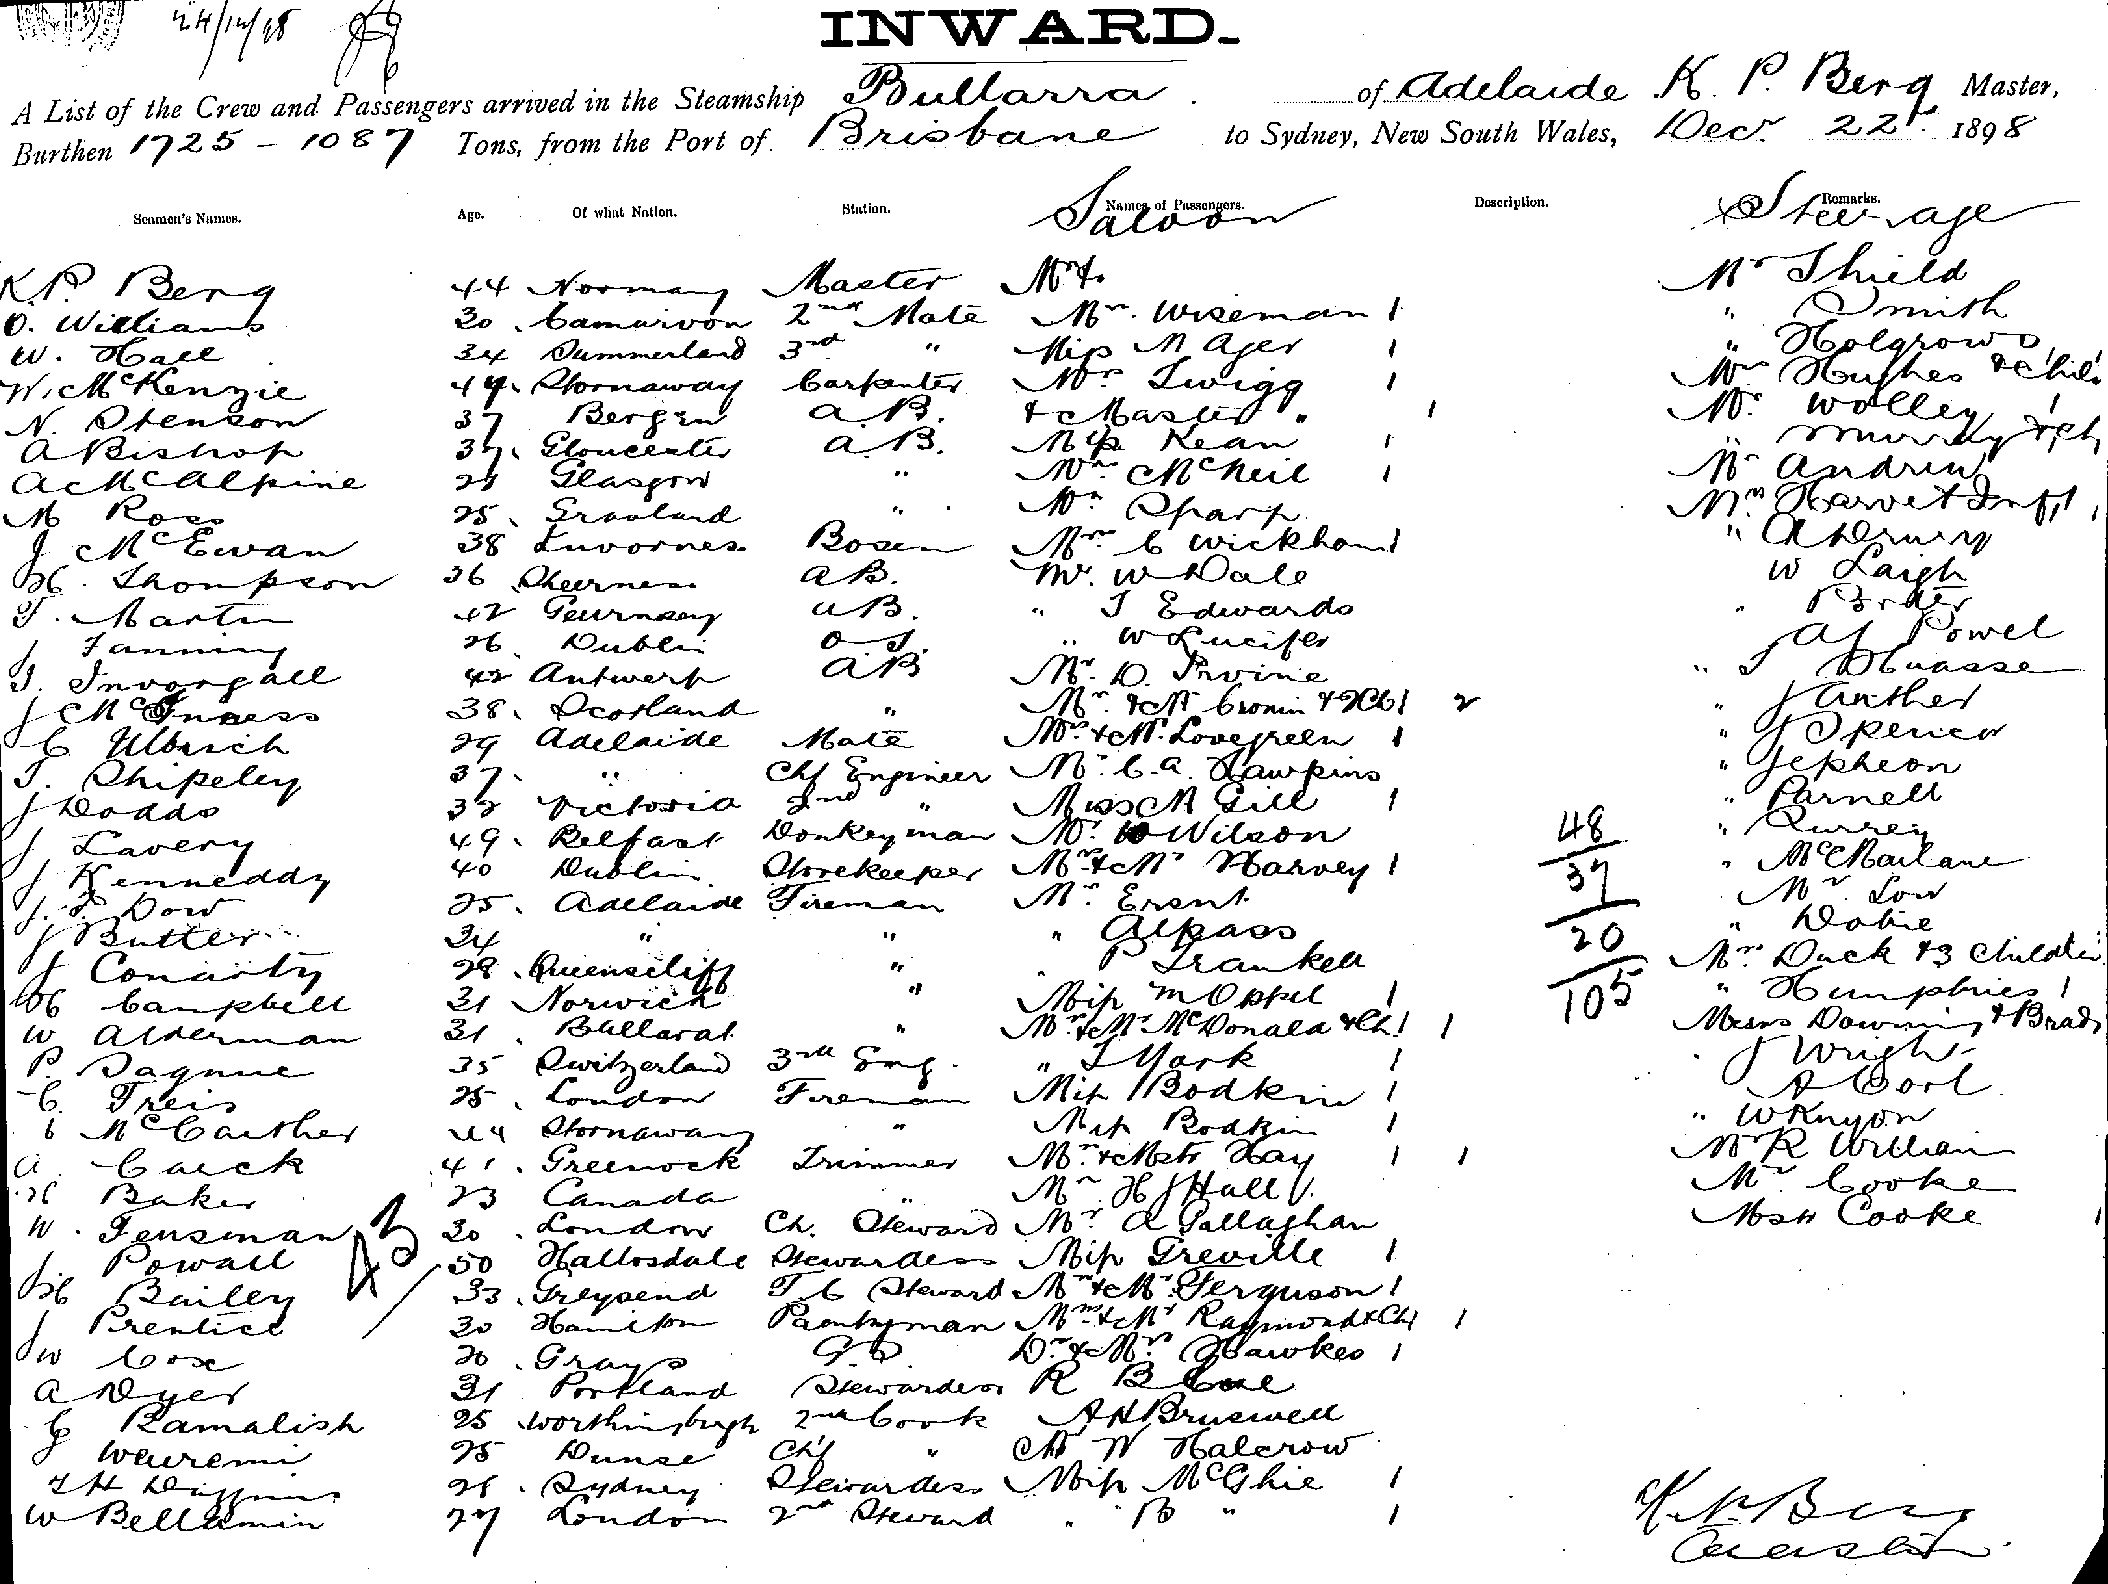 24/12/98
INWARD.
A List of the Crew and Passengers arrived in the Steamship Bullarra of Adelaide K. P. Berg Master,
Burthen 1725 - 1087 Tons, from the Port of Brisbane to Sydney, New South Wales, Decr 22 1898
Seamen's Names. Age. Of what Nation. Station. Names of Passengers. Description. Remarks.
Saloon Steerage
K.P. Berg 44 Norway Master Mr & Mr Shield
O. Williams 30 Carnarvon 2nd Mate Mrs. Wiseman 1 " Smith
W. Hall 34 3rd " Miss M Ager 1 "
W. McKenzie 49 Stornaway Carpenter Mrs Twigg 1 Mrs Hughes &
N. Stenson 37 Bergen A.B. & Master " 1 Mr Wolley
A Bishop 37 Gloucester A.B. Miss Kean 1 "
A McAlpine Glasgow " Mrs McNeil 1 Mr
M Ross 25 " Mr Sharp Mrs
J McEwan 38 Bosen Mrs C Wickham 1 "
H. Thompson 36 Sheerness AB. Mr. W Dale W Laigh
T. Martin 42 AB. " T Edwards "
J Fanning 26 Dublin O S. " W Lucifer A J Powel
42 Antwerp AB Mr. D. Irvine "
J McInness 38 Scotland " Mrs & Mr Cronin & 2Ch 1 2 "
C Ulbrich 29 Adelaide Mate Mrs & Mr Lovegreen 1 " J Spencer
T. Shipeley 37 " Chf Engineer Mr. C. A. Hawkins " Jepheon
J Dodds 32 Victoria 2nd " Miss M Gill 1 " Parnell
J Lavery 49 Belfast Donkeyman Mr. W Wilson 48 "
J Kenneddy 40 Dublin Storekeeper Mrs & Mr Harvey 1 37 "
J. Dow 25 Adelaide Fireman Mr. 20 Mr Low
J Butter 34 " " " Alpass 105 " Dobie
J 28 Queenscliff " P Mrs Duck & 3 Children
H Campbell 31 Norwich " Miss M Oppel 1 " Humphries 1
W Alderman 31 Ballarat " Mrs & Mr McDonald & Ch 1 1 Messrs Downing & Brady
P. 35 Switzerland 3rd Eng. " T York 1 J Wright
C. Treis 25 London Fireman Miss Bodkin 1 A
McCarther 44 Stornaway " Miss Bodkin 1 " W Knyon
A 41 Greenock Trimmer Mrs & Mstr Hay 1 1 Mr R William
H Baker 23 Canada " Mr. H J Hall Mr Cooke
W. Fensman 30 London Ch. Steward Mr A Gallaghan Miss Cooke 1
J Powall 43 50 Stewardess Miss Greville 1
H Bailey 33 T C Steward Mrs & Mr Ferguson 1
J Prentice 30 Hamilton Pantryman Mrs & Mr Raymond & Ch 1 1
W Cox 20 Grays Dr & Mrs Hawkes 1
A Dyer 31 Portland Stewardess R B
C Ramalish 25 2nd Cook A H Bruswell
J 25 Dunse Chf " M W Halcrow
Sydney Stewardess Miss McGhie 1
W Bellamin 27 London 2nd Steward " B " 1
K. P. Berg